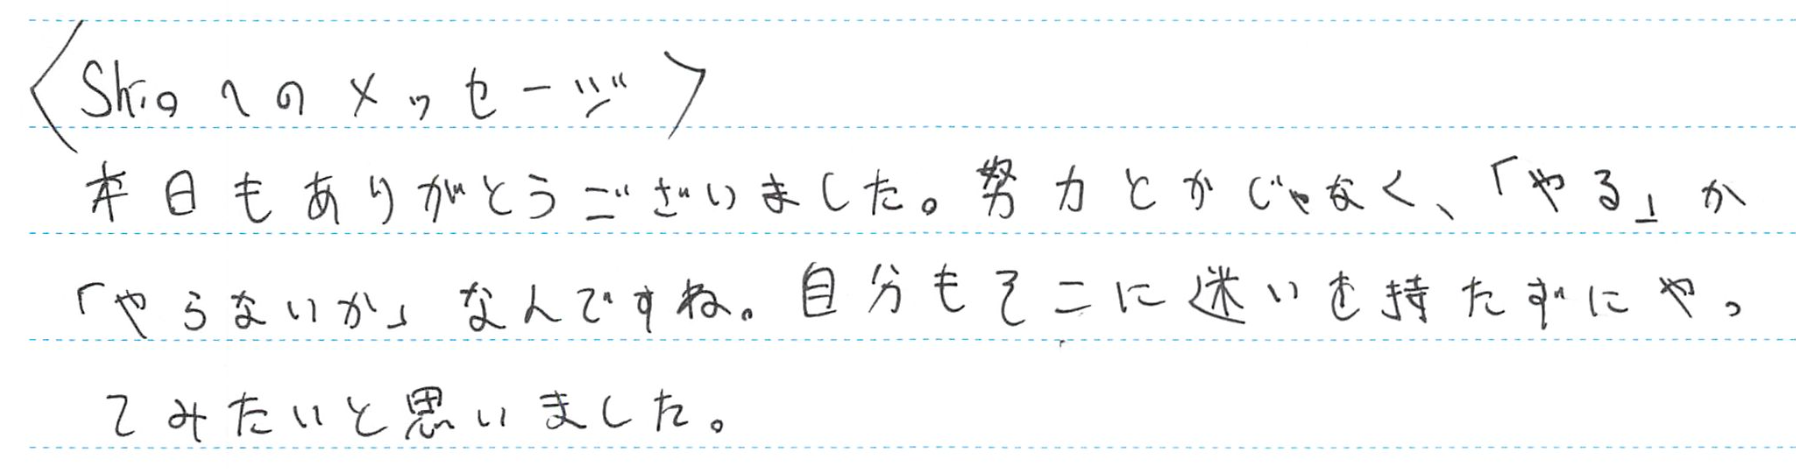 〈Shioへのメッセージ〉
本日もありがとうございました。努力とかじゃなく、「やる」か
「やらないか」なんですね。自分もそこに迷いを持たずにやっ
てみたいと思いました。